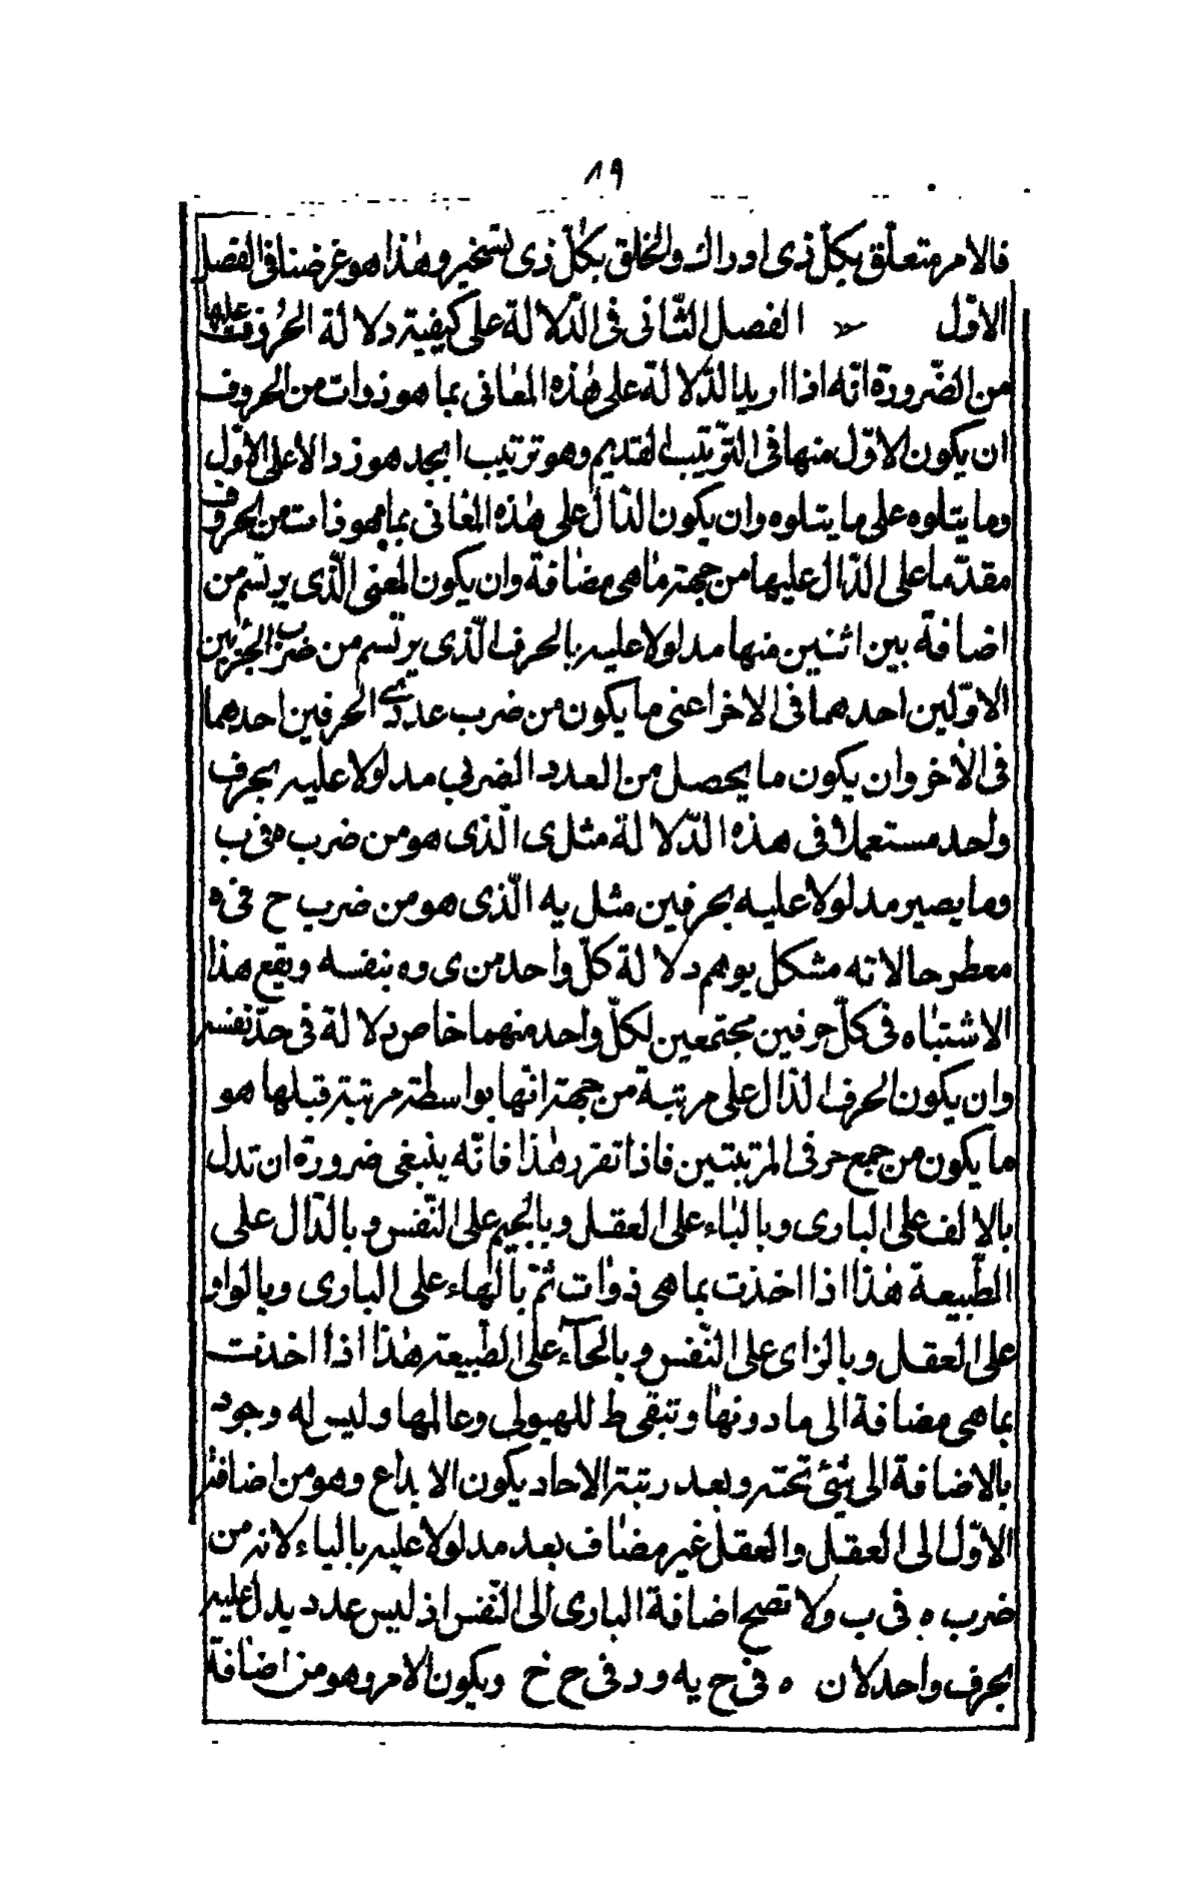 ١٩
فالامر متعلّق بكلّ ذى ادراك والخلق بكلّ ذى تسخير وهذا هو غرضنا فى الفصل
الاوّل الفصل الثّانى فى الدّلالة على كيفية دلالة الحروف عليها
من الضّرورة انّه اذا اريد الدّلالة على هذه المعانى بما هو ذوات من الحروف
ان يكون الاوّل منها فى التّرتيب القديم وهو ترتيب ابجد هوز دالا على الاوّل
وما يتلوه على ما يتلوه وان يكون الدّالّ على هذه المعانى بما هو ذات من الحروف
مقدّما على الدّال عليها من جهة ما هى مضافة وان يكون المعنى الّذى يرتسم من
اضافة بين اثنين منها مدلولا عليه بالحرف الّذى يرتسم من ضرب الجزئين
الاوّلين احدهما فى الاخر اعنى ما يكون من ضرب عددى الحرفين احدهما
فى الاخر وان يكون ما يحصل من العدد الضربى مدلولا عليه بحرف
واحد مستعملا فى هذه الدّلالة مثل ى الّذى هو من ضرب ه فى ب
وما يصير مدلولا عليه بحرفين مثل يه الّذى هو من ضرب ج فى ه
معطر حالاته مشكل يوهم دلالة كلّ واحد من ى وه بنفسه ويقع هذا
الاشتباه فى كلّ حرفين مجتمعين لكلّ واحد منهما خاص دلالة فى حدّ نفسه
وان يكون الحرف الدّال على مرتبة من جهة انّها بواسطة مرتبة قبلها هو
ما يكون من جمع حرفى المرتبتين فاذا تقرر هذا فانّه ينبغى ضرورة ان تدل
بالالف على البارى وبالباء على العقل وبالجيم على النّفس وبالدّال على
الطّبيعة هذا اذا اخذت بما هى ذوات ثمّ بالهاء على البارى وبالواو
على العقل وبالزاى على النّفس وبالحآء على الطّبيعة هذا اذا اخذت
بما هى مضافة الى ما دونها وتبقى ط للهيولى وعالمها وليس له وجود
بالاضافة الى شئ تحته وبعد رتبة الاحاد يكون الابداع وهو من اضافة
الاوّل الى العقل والعقل غير مضاف بعد مدلولا عليه بالياء لانه من
ضرب ه فى ب ولا تصح اضافة البارى الى النّفس اذ ليس عدد يدل عليه
بحرف واحد لان ه فى ج يه ود فى ج خ ويكون الامر وهو من اضافة